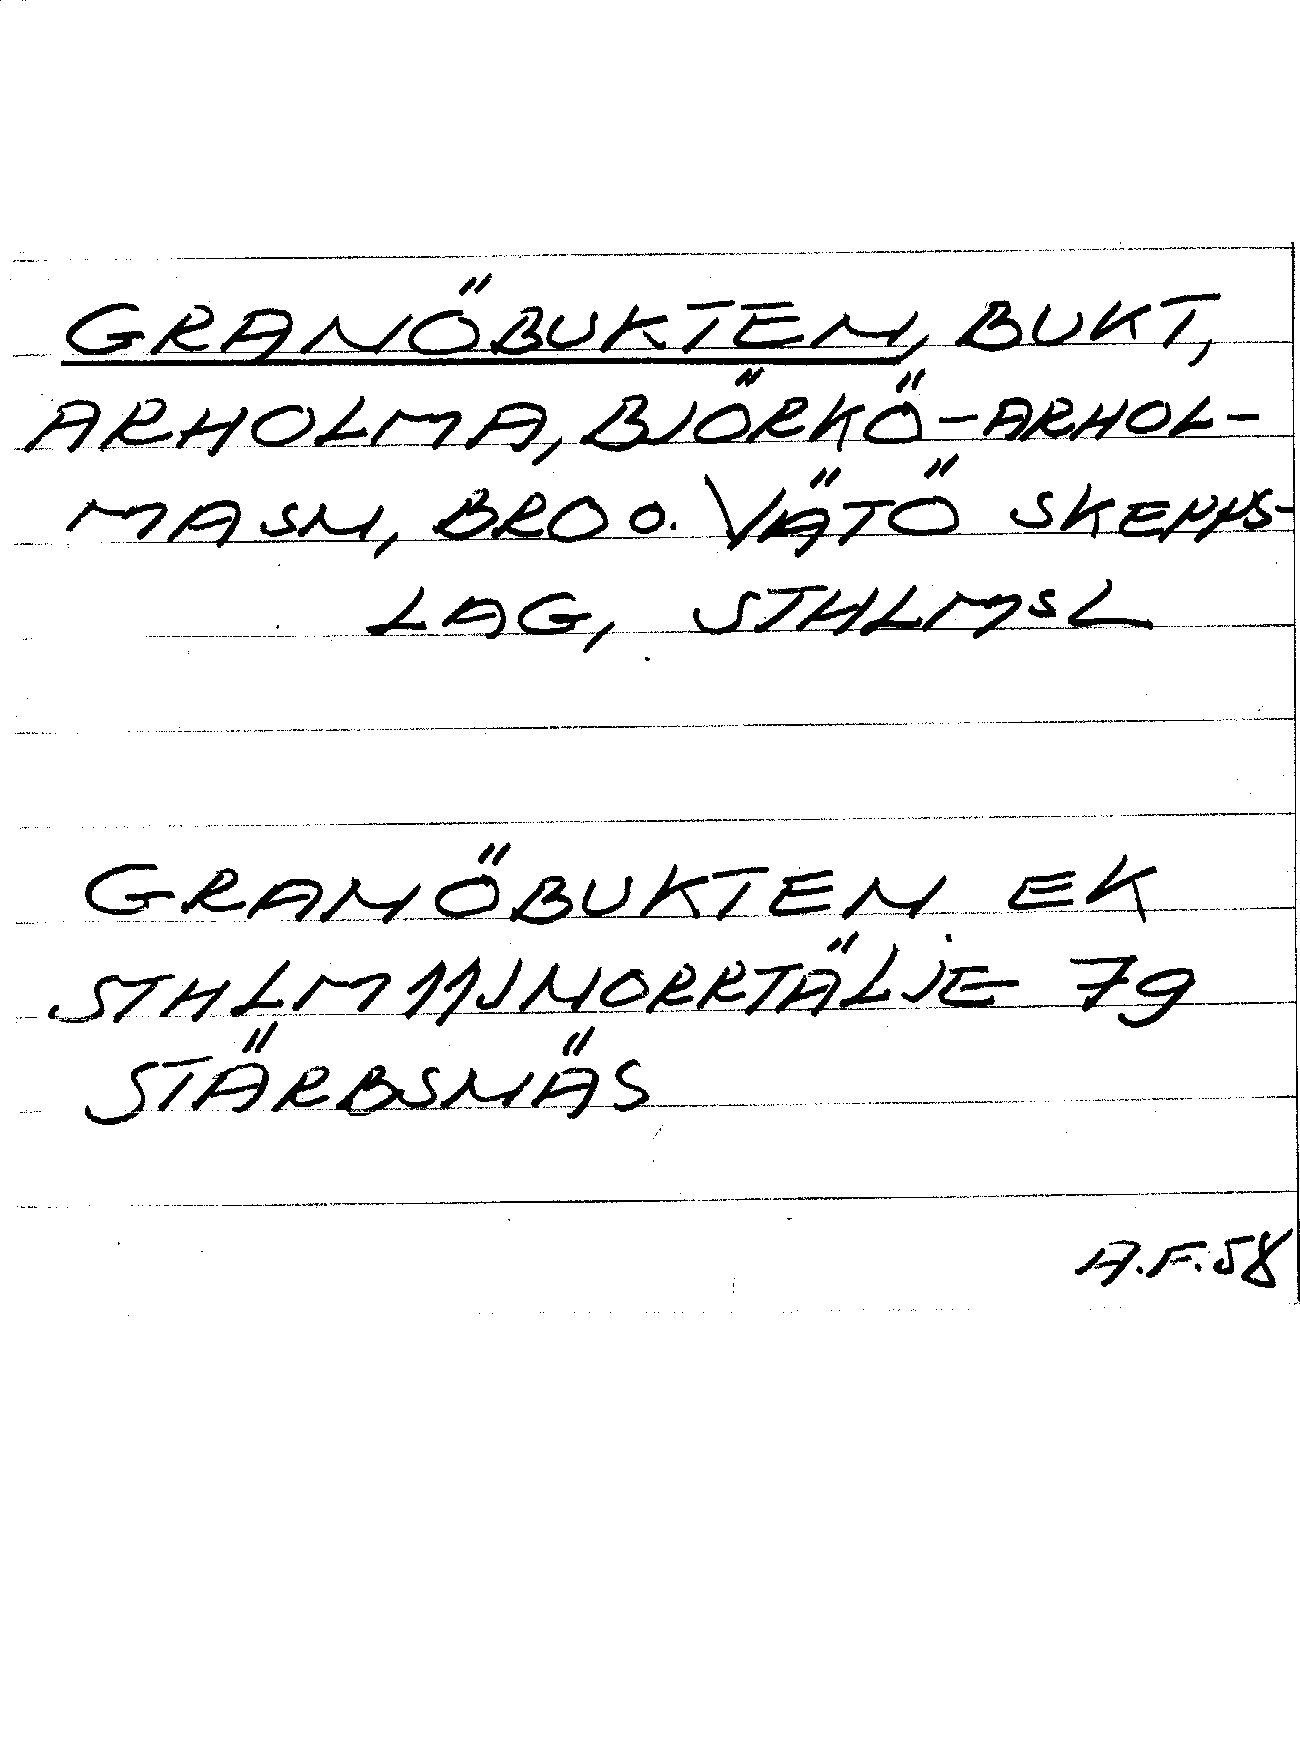 GRANÖBUKTEN, BUKT,
ARHOLMA, BJÖRKÖ-ARHOL-
MASN, BRO O. VÄTÖ SKEPPS-
LAG, STHLMSL
GRANÖBUKTEN EK
STHLM 11J NORRTÄLJE 79
STÄRBSNÄS
A.F.58